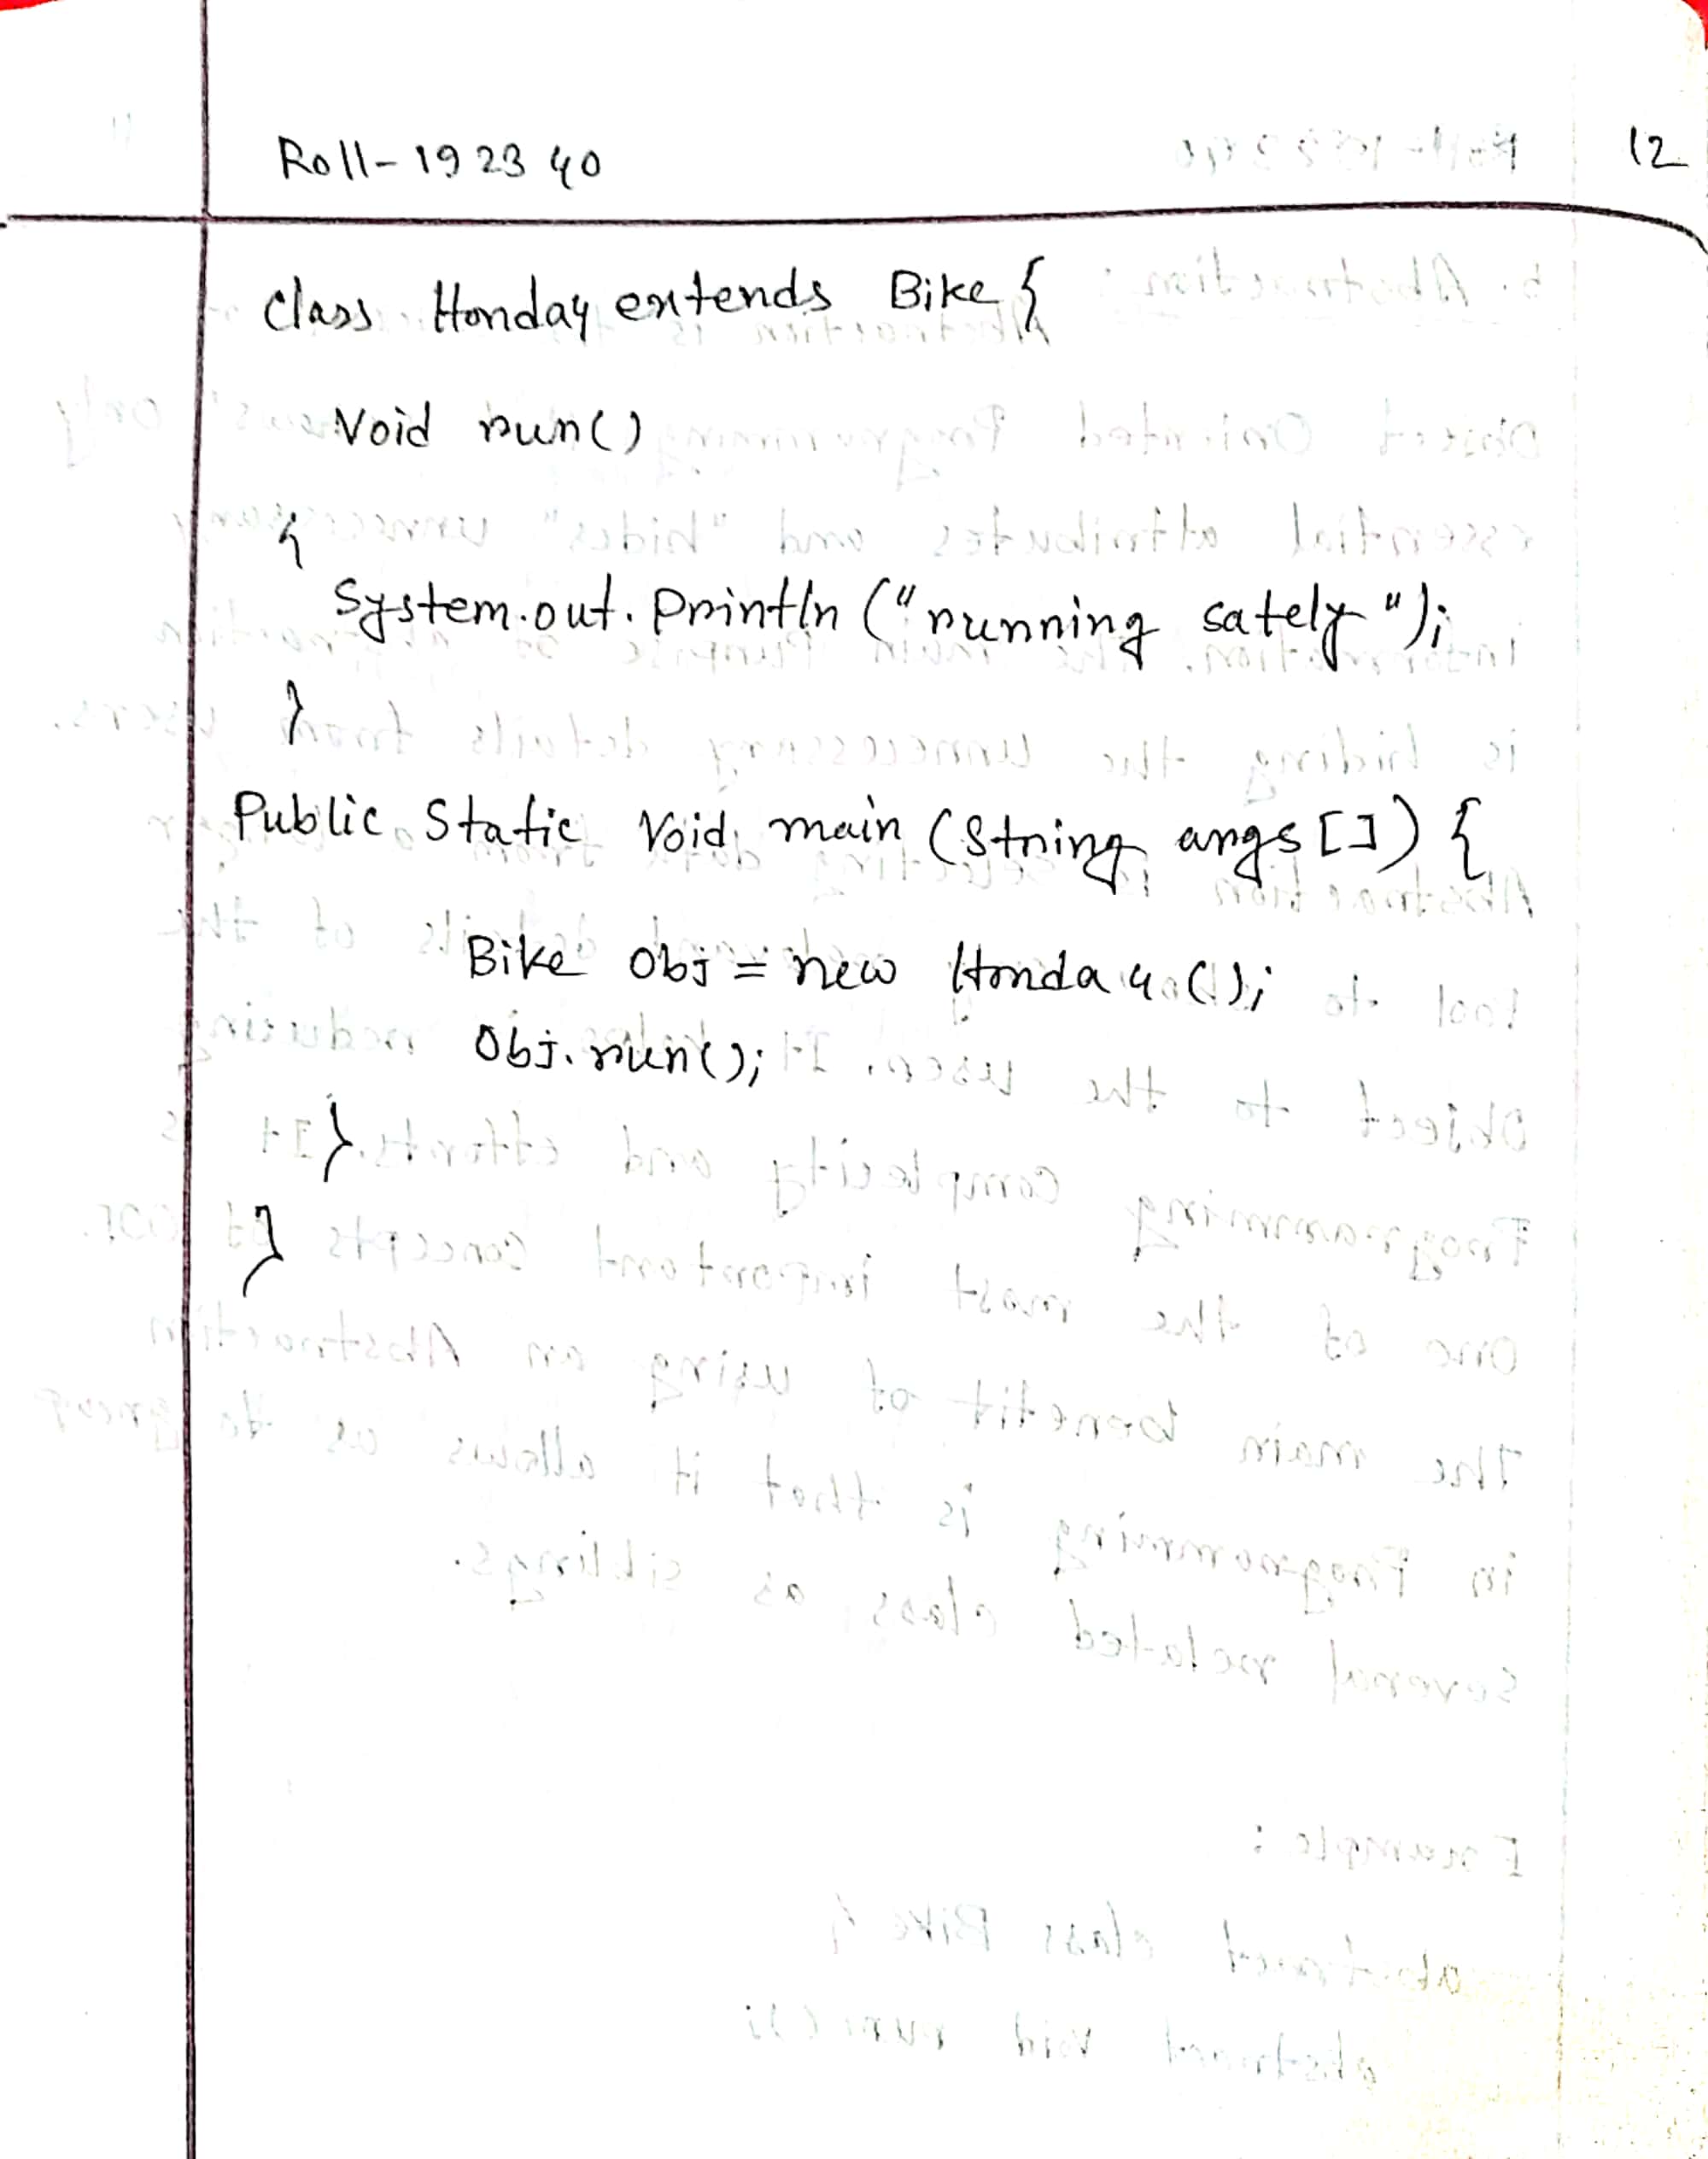 Roll-192340
12
Class Honda4 extends Bike {
Void run()
{
System.out.Println ("running safely");
}
Public Static Void main (String args[]) {
Bike Obj = new Honda4();
Obj.run();
}
}